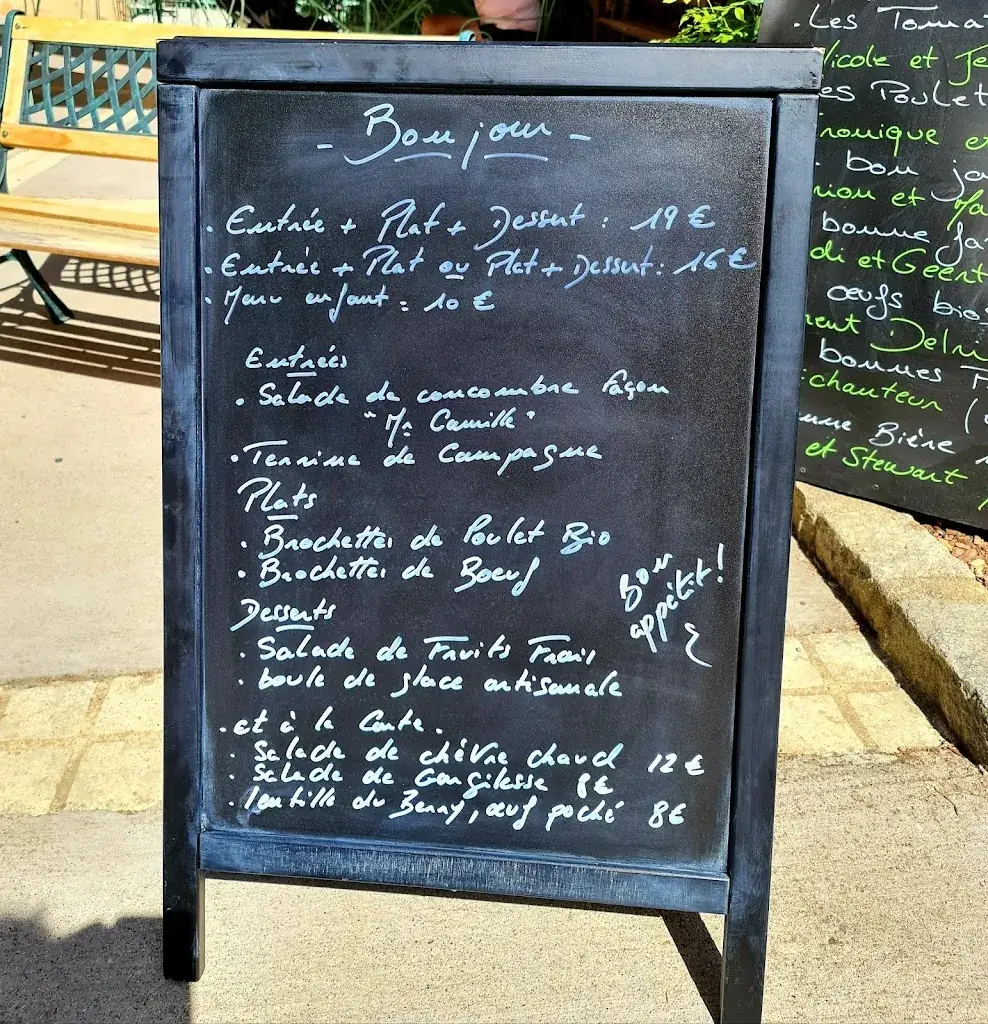 - Bonjour -
. Entrée + Plat + Dessert : 19 €
. Entrée + Plat ou Plat + Dessert : 16 €
. Menu enfant : 10 €
Entrées
. Salade de concombre façon
"Mr Camille"
. Terrine de Campagne
Plats
. Brochettes de Poulet Bio
. Brochettes de Boeuf
Bon
appétit !
Desserts
. Salade de Fruits Frais
. boule de glace artisanale
. et à la Carte .
. Salade de chèvre chaud 12 €
. Salade de Gargilesse 8€
. lentille du Berry, œuf poché 8€
. Les Tomat
Nicole et Je
es Poulet
ronique et
bon ja
rion et Ma
bonne ja
di et Geert
œufs bios
rent Delri
bonnes
chanteur (
nne Bière
et Stewart